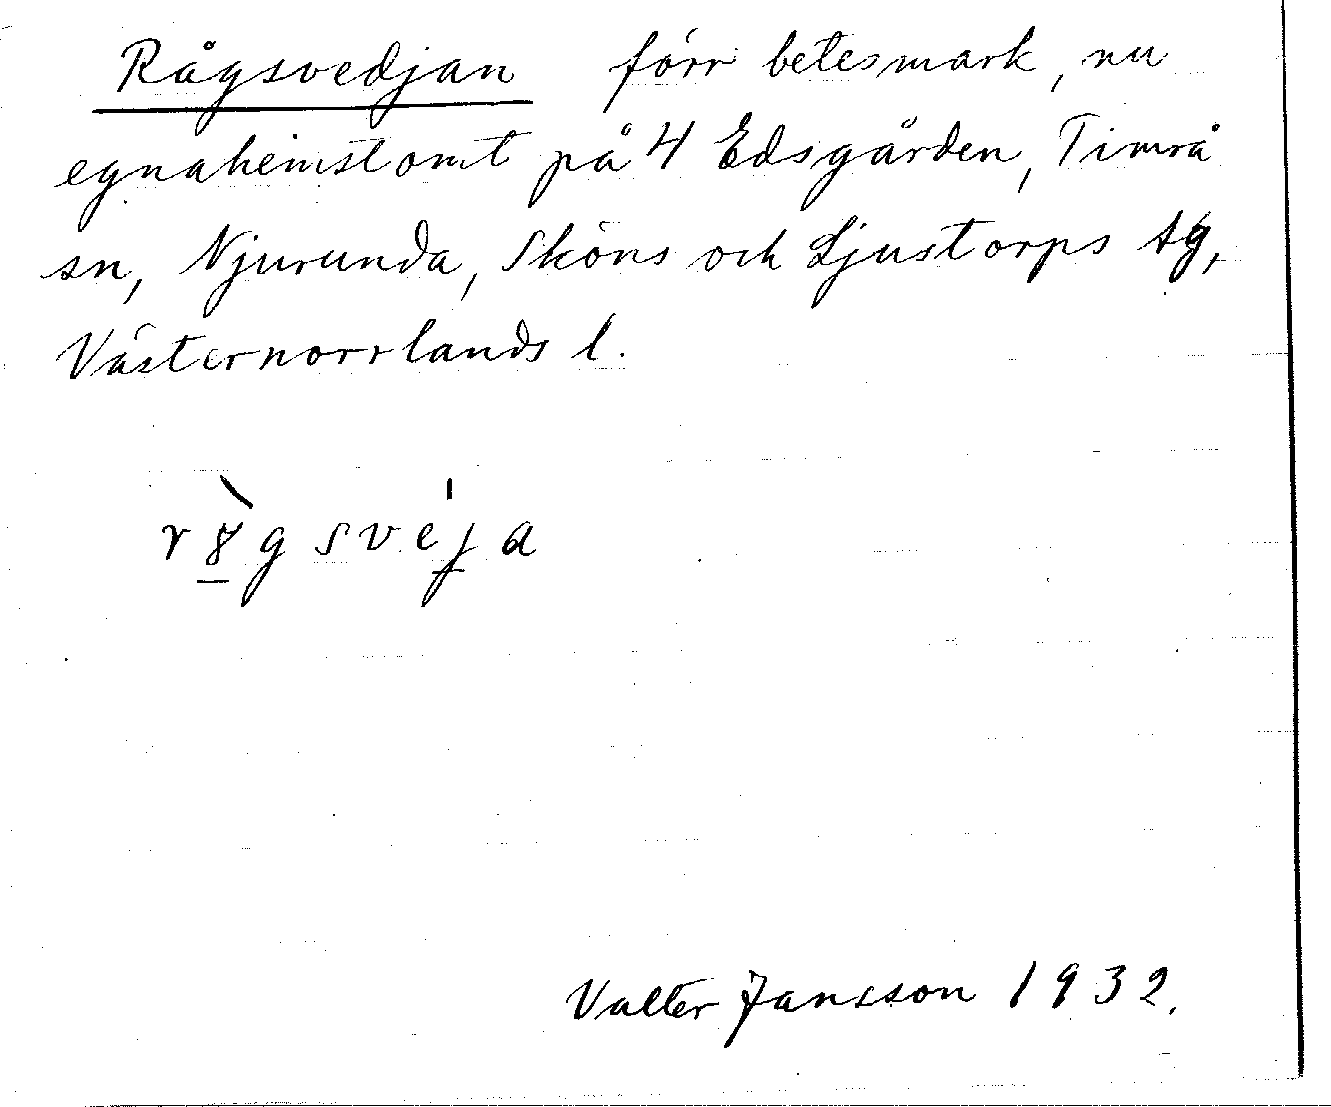 Rågsvedjan förr betesmark, nu
egnahemstomt på 4 Edsgården, Timrå
sn, Njurunda, Sköns och Ljustorps tg,
Västernorrlands l.
Valter Jansson 1932.